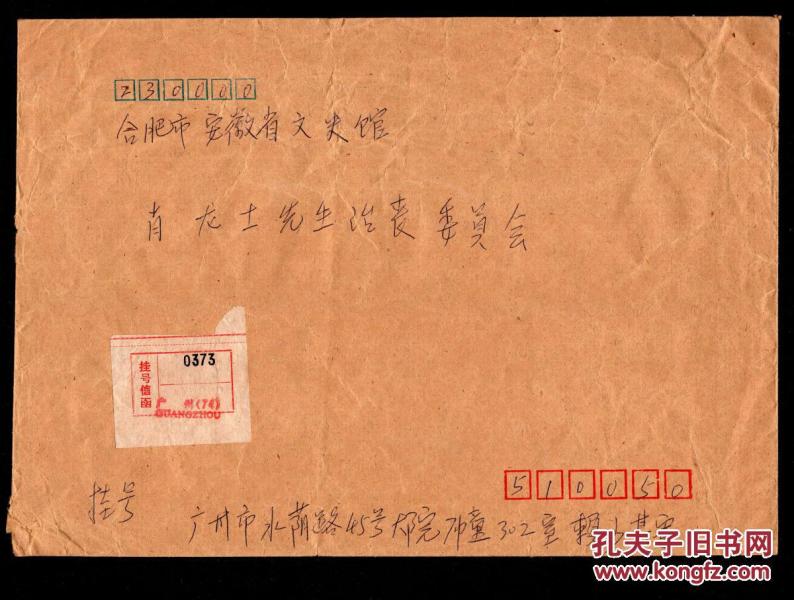 230000
合肥市安徽省文史馆
肖龙士先生治丧委员会
0373
挂号信函
广 州(74)
GUANGZHOU
510050
挂号
广州市水荫路45号大院 302室
孔夫子旧书网
www.kongfz.com